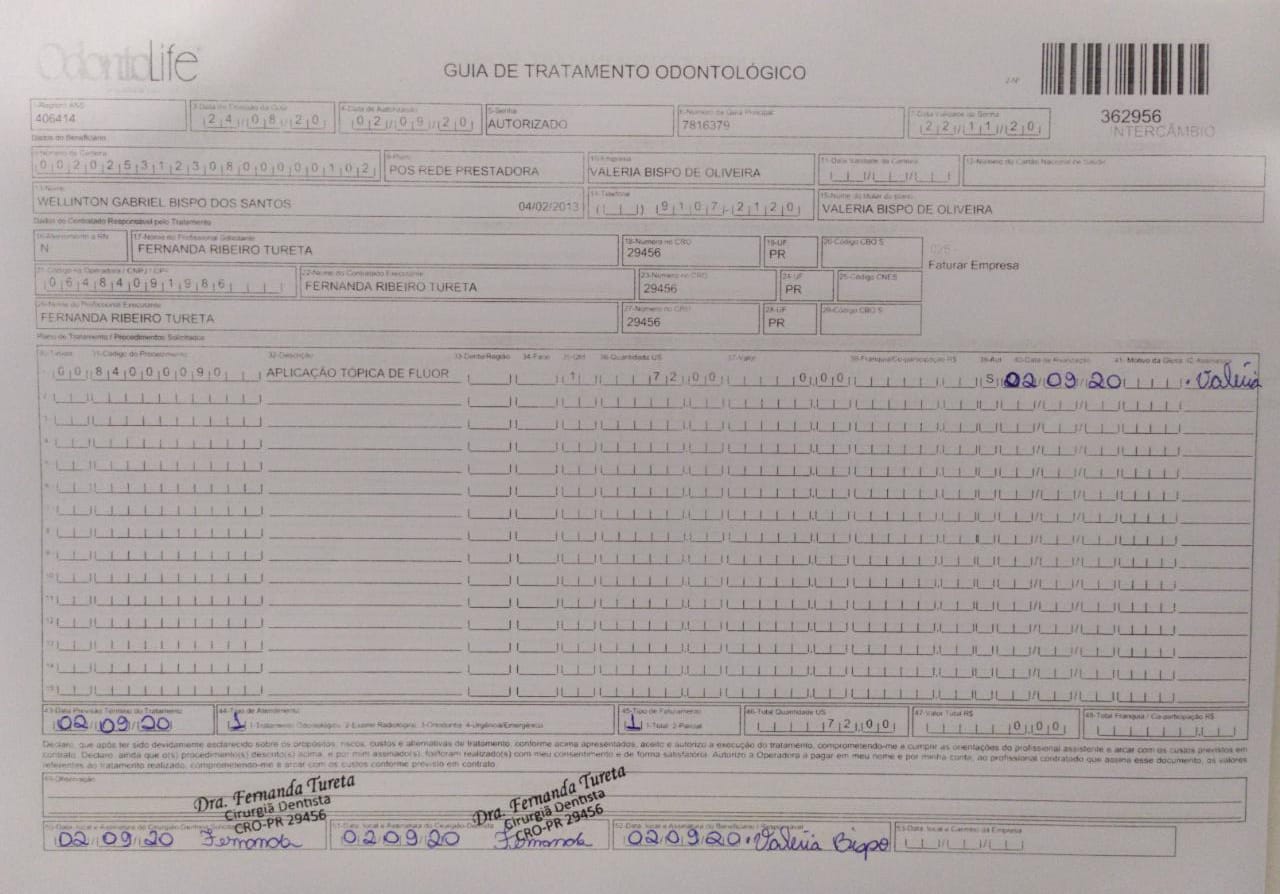 OdontoLife
GUIA DE TRATAMENTO ODONTOLÓGICO
2-Nº
362956
INTERCÂMBIO
1-Registro ANS 3-Data de Emissão da Guia 4-Data de Autorização 5-Senha 6-Número da Guia Principal 7-Data Validade da Senha
406414 24/08/20 02/09/20 AUTORIZADO 7816379 22/11/20
Dados do Beneficiário
8-Número da Carteira 9-Plano 10-Empresa 11-Data Validade da Carteira 12-Número do Cartão Nacional de Saúde
00202531230800000102 POS REDE PRESTADORA VALERIA BISPO DE OLIVEIRA
13-Nome 14-Telefone 15-Nome do titular do plano
WELLINTON GABRIEL BISPO DOS SANTOS 04/02/2013 ( ) 9107-2120 VALERIA BISPO DE OLIVEIRA
Dados do Contratado Responsável pelo Tratamento
16-Atendimento a RN 17-Nome do Profissional Solicitante 18-Número no CRO 19-UF 20-Código CBO S
N FERNANDA RIBEIRO TURETA 29456 PR
025
Faturar Empresa
21-Código na Operadora / CNPJ / CPF 22-Nome do Contratado Executante 23-Número no CRO 24-UF 25-Código CNES
06484091986 FERNANDA RIBEIRO TURETA 29456 PR
26-Nome do Profissional Executante 27-Número no CRO 28-UF 29-Código CBO S
FERNANDA RIBEIRO TURETA 29456 PR
Plano de Tratamento / Procedimentos Solicitados
30-Tabela 31-Código do Procedimento 32-Descrição 33-Dente/Região 34-Face 35-Qtd 36-Quantidade US 37-Valor 38-Franquia/Co-participação R$ 39-Aut 40-Data de Realização 41- Motivo da Glosa 42-Assinatura
00 84000090 APLICAÇÃO TÓPICA DE FLUOR 1 7200 000 S 02/09/20 Valeria
2
3
4
5
6
7
8
9
10
11
12
13
14
15
43-Data Previsão Término do Tratamento 44-Tipo de Atendimento 45-Tipo de Faturamento 46-Total Quantidade US 47-Valor Total R$ 48-Total Franquia / Co-participação R$
02/09/20 1 1-Tratamento Odontológico 2-Exame Radiológico 3-Ortodontia 4-Urgência/Emergência 1 1-Total 2-Parcial 7200 000
Declaro, que após ter sido devidamente esclarecido sobre os propósitos, riscos, custos e alternativas de tratamento, conforme acima apresentados, aceito e autorizo a execução do tratamento, comprometendo-me a cumprir as orientações do profissional assistente e arcar com os custos previstos em
contrato. Declaro, ainda que o(s) procedimento(s) descrito(s) acima, e por mim assinado(s), foi/foram realizado(s) com meu consentimento e de forma satisfatória. Autorizo a Operadora a pagar em meu nome e por minha conta, ao profissional contratado que assina esse documento, os valores
referentes ao tratamento realizado, comprometendo-me a arcar com os custos conforme previsto em contrato.
49-Observação
Dra. Fernanda Tureta
Cirurgiã Dentista
CRO-PR 29456
Dra. Fernanda Tureta
Cirurgiã Dentista
CRO-PR 29456
50-Data, local e Assinatura do Cirurgião-Dentista 51-Data, local e Assinatura do Cirurgião-Dentista 52-Data, local e Assinatura do Beneficiário 53-Data, local e Carimbo da Empresa
02/09/20 Fernanda 02/09/20 Fernanda 02/09/20 Valeria Bispo